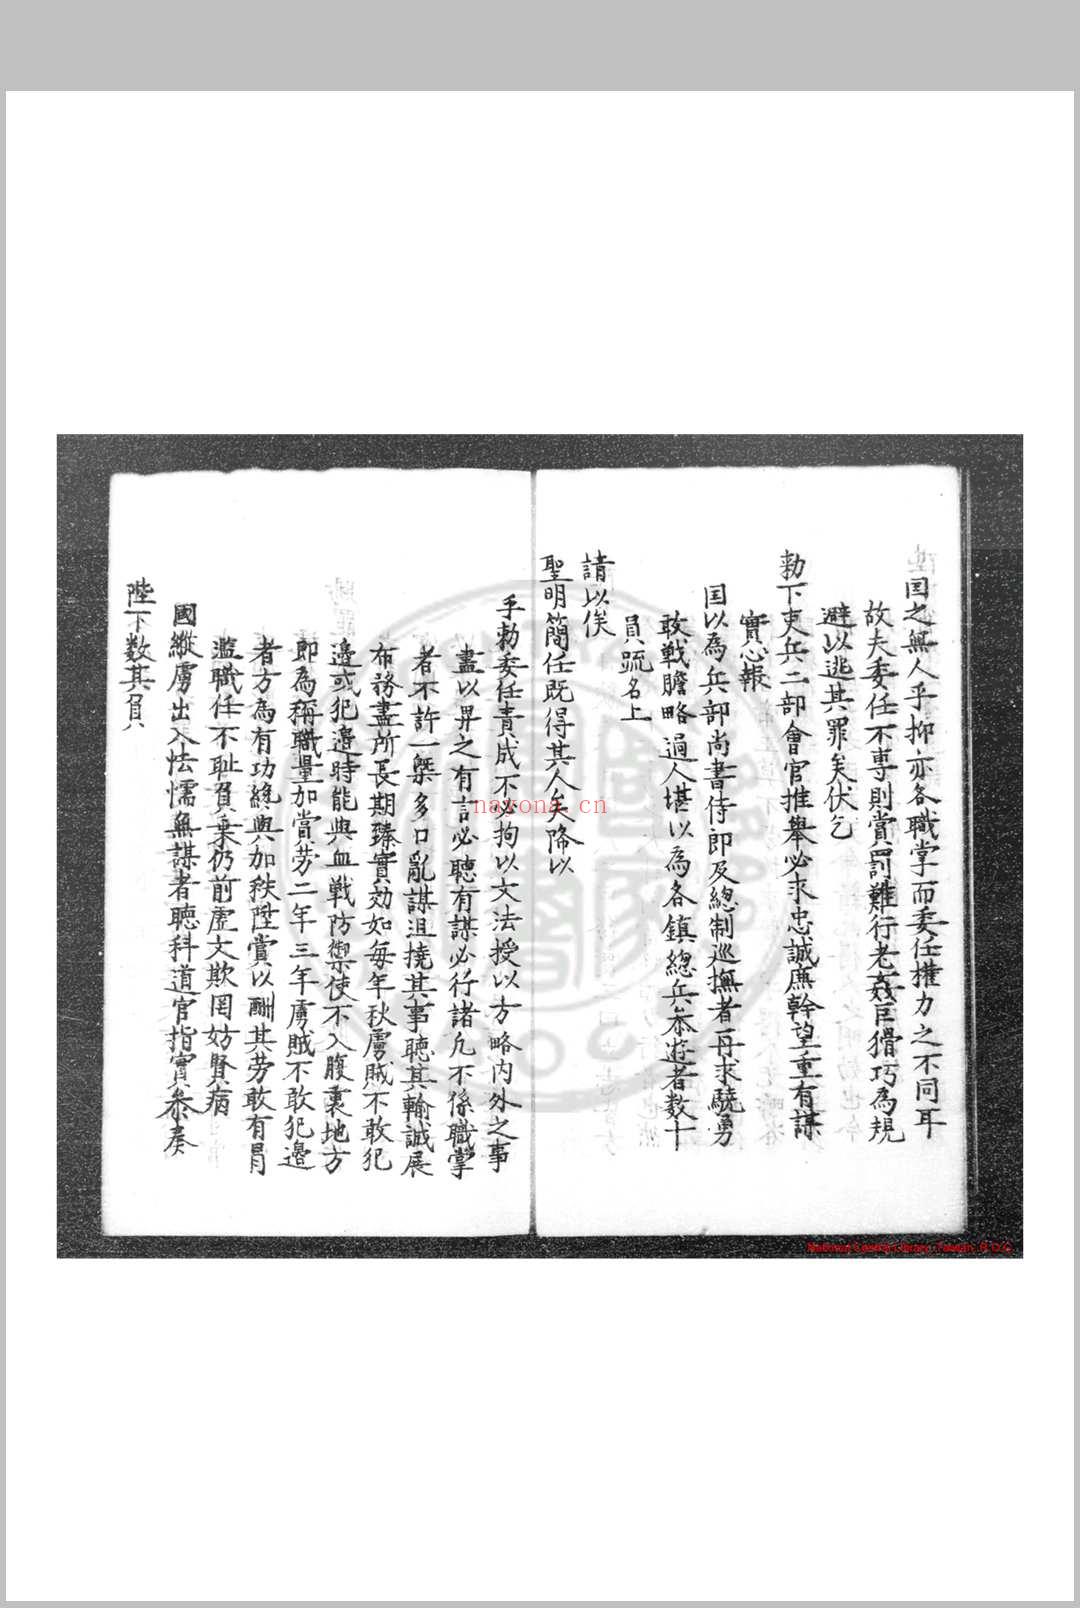 囯之無人乎抑亦各職掌而委任權力之不同耳
故夫委任不專則賞罰難行老姦巨猾巧為規
避以逃其罪矣伏乞
勅下吏兵二部會官推舉必求忠誠廉幹望重有謀
實心報
囯以為兵部尚書侍郎及總制巡撫者再求驍勇
敢戰膽略過人堪以為各鎮總兵叅遊者数十
員疏名上
請以俟
聖明簡任既得其人矣降以
手勅委任責成不必拘以文法授以方略內外之事
盡以畀之有言必聽有謀必行諸凡不係職掌
者不許一槩多口亂謀沮撓其事聽其輸誠展
布務盡所長期臻實効如每年秋虜賊不敢犯
邊或犯邊時能與血戰防禦使不入腹裏地方
即為稱職量加賞勞二年三年虜賊不敢犯邊
者方為有功緫與加秩陞賞以酬其劳敢有冐
濫職任不耻負乗仍前虛文欺罔妨賢病
國縱虜出入怯懦無謀者聽科道官指實叅奏
陛下数其負
nayona.cn
National Central Library, Taiwan, R.O.C